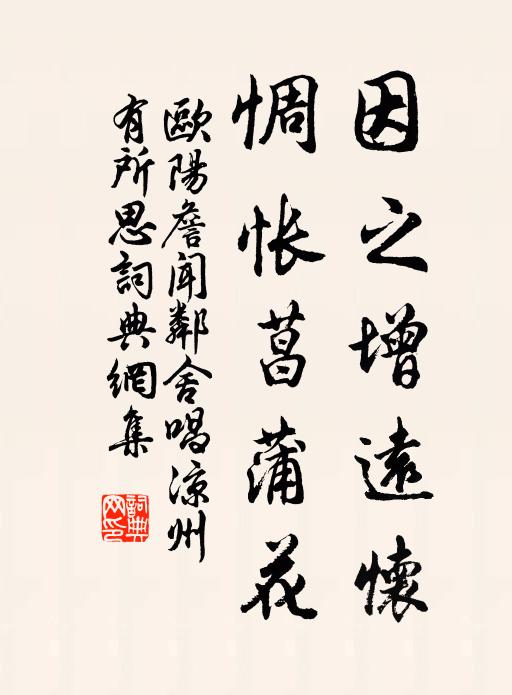 因之增遠懷
惆怅菖蒲花
歐陽詹闻鄰舍唱凉州
有所思詞典網集
詞典
网印